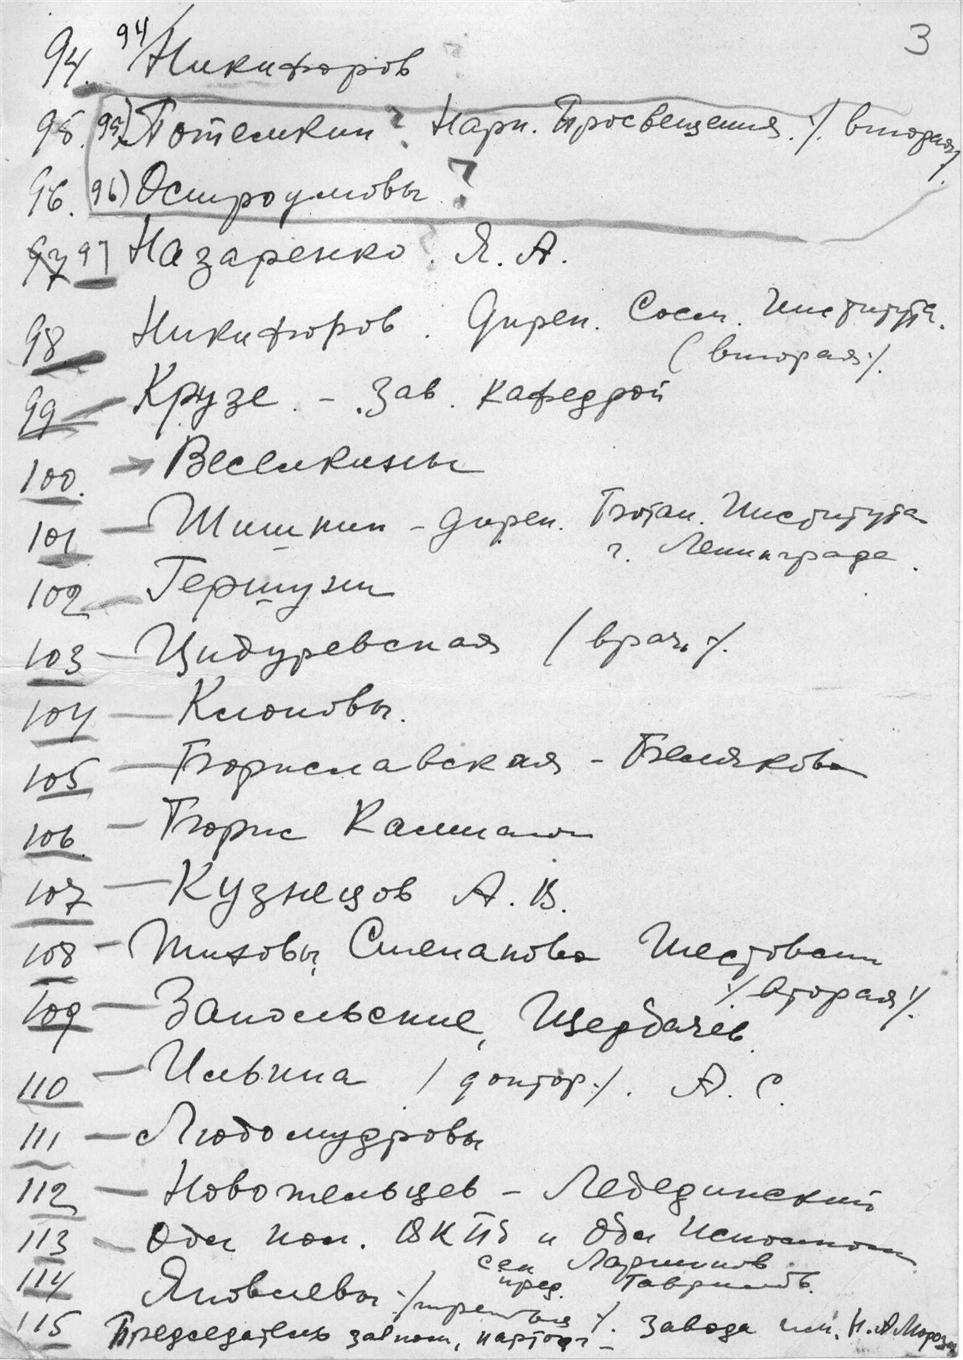 3
94. 94 Никифоров ?
95. 95) Потемкин ? Нарк. Просвещения. /. вторая/
96. 96) Остроумовы ?
97 97 Назаренко. Я. А.
98 Никифоров. Дирек. Сосн. Института.
( вторая /.
99 Крузе. - Зав. кафедрой
100. Веселкины
101 - Шишкин - дирек. Ботан. Института
г. Ленинграда.
102 Гершуни
103 - Цидуревская / врач /.
104 - Клюковы.
105 - Бориславская - Белякова
106 - Борис
107 - Кузнецов А. В.
108 - Тиховы, Степанова Шестовский
/ вторая /.
109 - Запольские, Щербачев
110 - Ильина / доктор /. А. С.
111 - Любомудровы
112 - Новотельцев - Лебединский
113 Обл. ком. ВКПб и Обл
сек. Ларионов
пред.
114 Яковлевы / третья /.
115 Председатель завком, парторг - Завода им. Н. А. Мороз